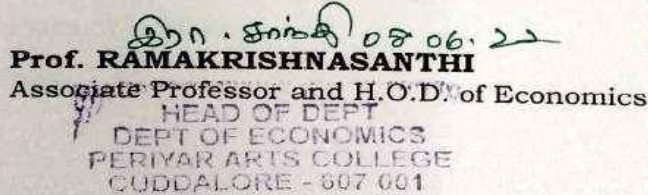 இரா. சாந்தி 08.06.22
Prof. RAMAKRISHNASANTHI
Associate Professor and H.O.D. of Economics
HEAD OF DEPT
DEPT OF ECONOMICS
PERIYAR ARTS COLLEGE
CUDDALORE - 607 001